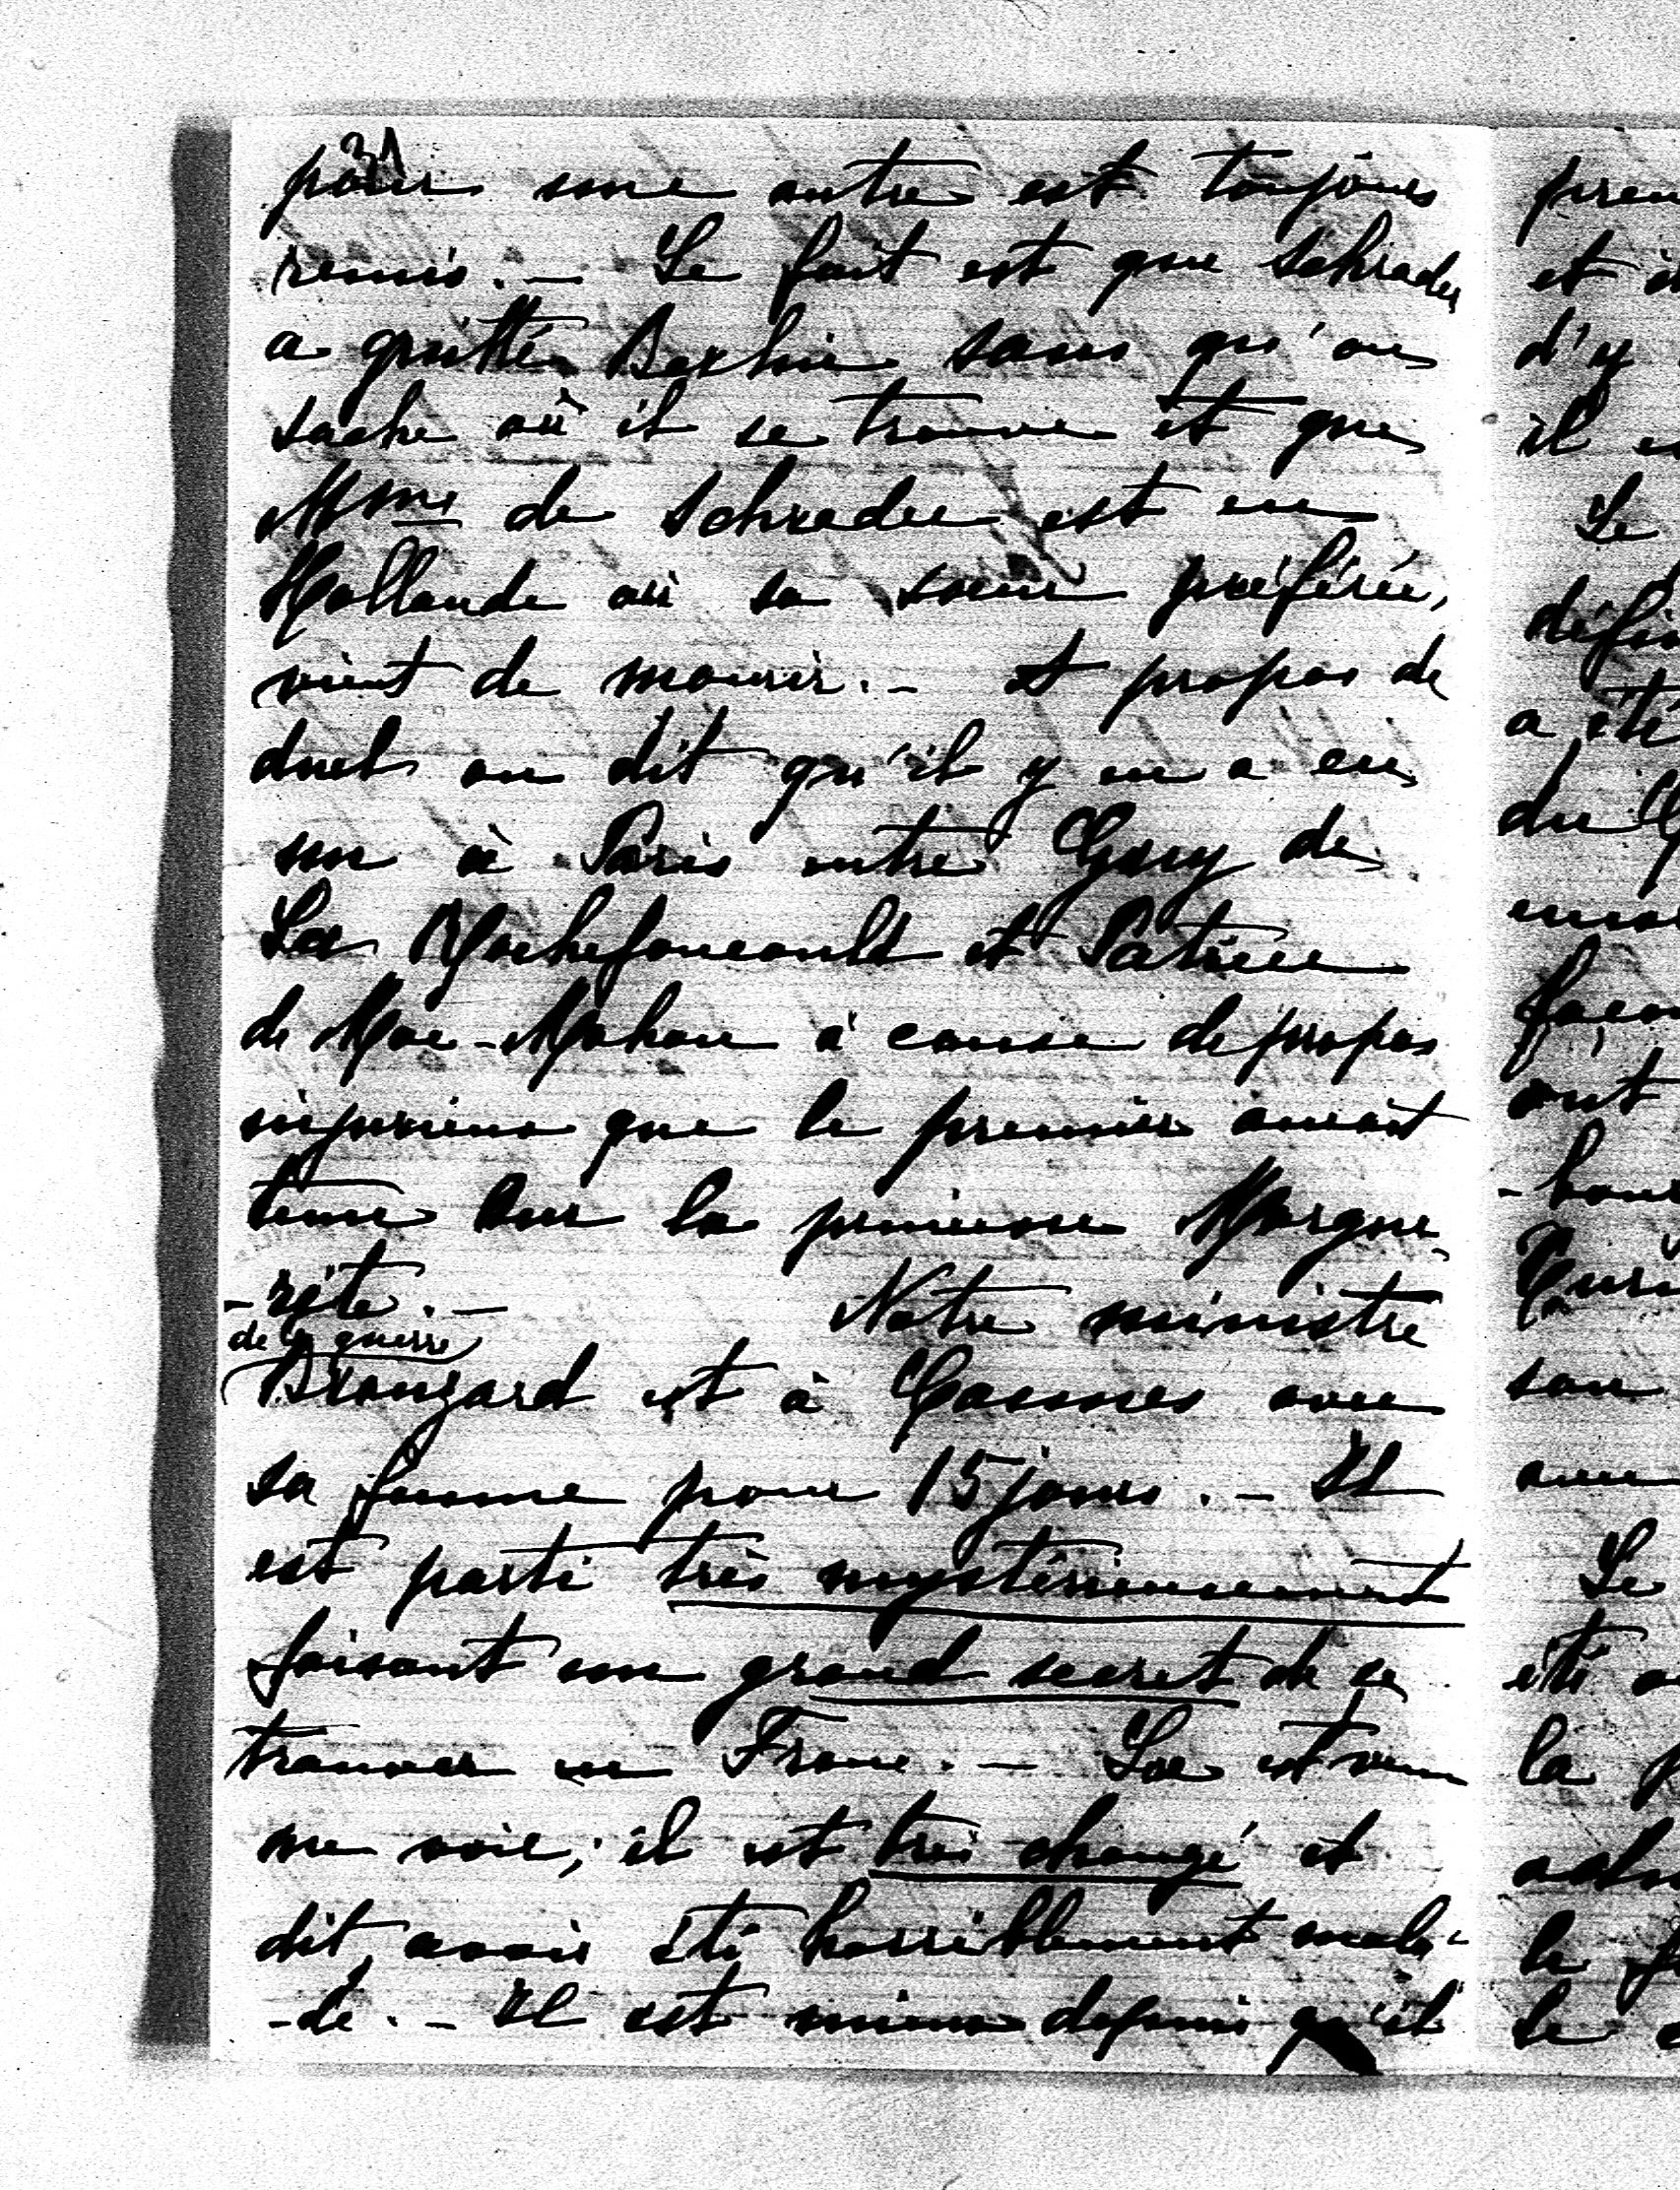 31
pour une autre est toujours
remis. — Le fait est que Schrader
a quitté Berlin sans qu'on
sache où il se trouve et que
Mme de Schrader est en
Hollande où sa sœur préférée,
vient de mourir. — A propos de
duel on dit qu'il y en a eu
un à Paris entre Guy de
La Rochefoucauld et Patrice
de Mac-Mahon à cause de propos
injurieux que le premier aurait
tenu sur la princesse Margue
-rite. — Notre ministre
de la guerre
Bronzard est à Cannes avec
sa femme pour 15 jours. — Il
est parti très mystérieusement
faisant un grand secret de se
trouver en France. — est venu
me voir; il est très changé et
dit avoir été horriblement mala-
-de. — Il est mieux depuis qu'il
pren
et
d'y
il
Le
défin
a été
du
faço
ont
son
avec
Le
été
la
le
le